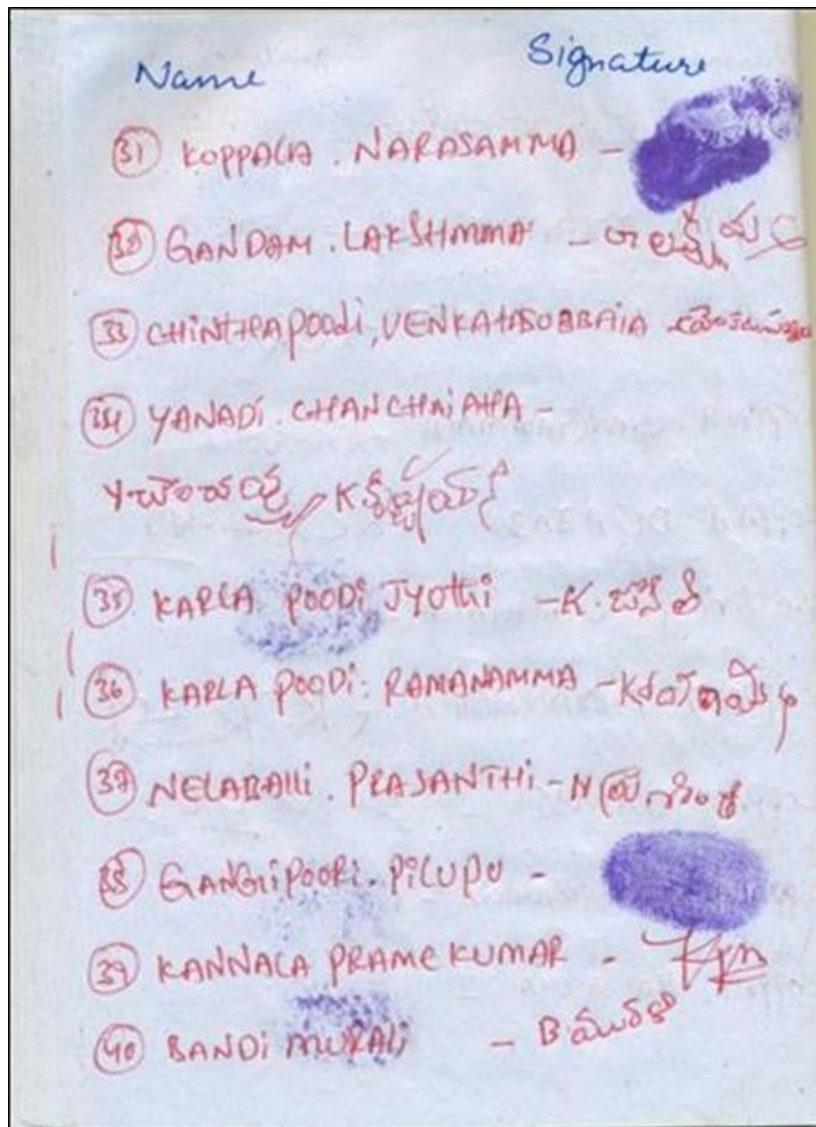 Name Signature
(31) KOPPALA . NARASAMMA -
(32) GANDAM . LAKSHMMA - గా లక్ష్మమ్మ
(33) CHINTHAPOODi, VENKATASUBBAIA
(34) YANADi. CHANCHAIAHA -
Y చెంచయ్య
(35) KARLA POODi JYOTHi - K. జ్యోతి
(36) KARLA POODi: RAMANAMMA - K రమణమ్మ
(37) NELABALLi. PRASANTHi - N ప్రశాంతి
(38) GANGiiPOORi. PiLUPU -
(39) KANNALA PRAMEKUMAR -
(40) BANDi MURALi - B మురళి